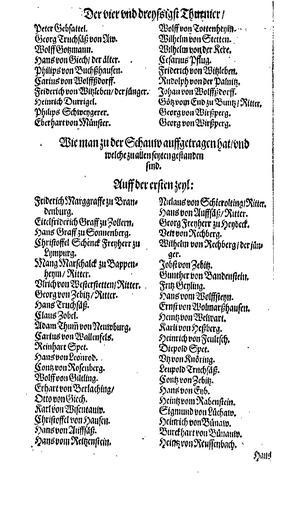 Der vier vnd dreyssigst Thurnier/
Peter Gebsattel.
Georg Truchsäß von Aw.
Wolff Gotzmann.
Hans von Giech/ der älter.
Philips von Buchßhausen.
Carius von Wolffßdorff.
Friderich von Witzleben/ der jünger.
Heinrich Dürrigel.
Philips Schweygerer.
Eberhart von Münster.
Wolff von Tottenheyn.
Wilhelm von Stetten.
Wilhelm von der Kere.
Cesarius Pflug.
Friderich von Witzleben.
Rudolph von der Palnitz.
Johan von Wolffßdorff.
Götz vom End zu Buntz/ Ritter.
Georg von Wirßperg.
Georg von Wirßperg.
Wie man zu der Schauw auffgetragen hat/ vnd
welche zu allen seyten gestanden
sind.
Auff der ersten zeyl:
Friderich Marggraffe zu Bran-
denburg.
Eitelfriderich Graff zu Zollern.
Hans Graff zu Sonnenberg.
Christoffel Schenck Freyherr zu
Lympurg.
Mang Marschalck zu Bappen-
heym/ Ritter.
Vlrich von Westersteften/ Ritter.
Georg von Zebitz/ Ritter.
Hans Truchsäß.
Claus Zobel.
Adam Thum von Neuwburg.
Carius von Wallenfels.
Reinhart Spet.
Hans von Leonrod.
Contz von Rosenberg.
Wolff von Gülting.
Erhart von Berlaching/
Otto von Giech.
Karl von Wisentauw.
Christoffel von Hausen.
Hans von Auffsäß.
Hans vom Reitzenstein.
Niclaus von Schierolting/ Ritter.
Hans von Auffsäß/ Ritter.
Georg Freyherr zu Heydeck.
Veit von Rechberg.
Wilhelm von Rechberg/ der jün-
ger.
Jobst von Zebitz.
Gunther von Bandenstein.
Fritz Geyling.
Hans vom Wolffsteyn.
Ernst von Wolmarßhausen.
Heintz von Welwart.
Karli von Heßberg.
Heinrich von Feulesch.
Diepold Spet.
Vtz von Knöring.
Leupold Truchsäß.
Contz von Zebitz.
Hans von Eyb.
Heintz vom Rabenstein.
Sigmund von Lüchaw.
Heinrich von Bünaw.
Burckhart von Bünauw.
Heintz von Reussenbach.
Hans